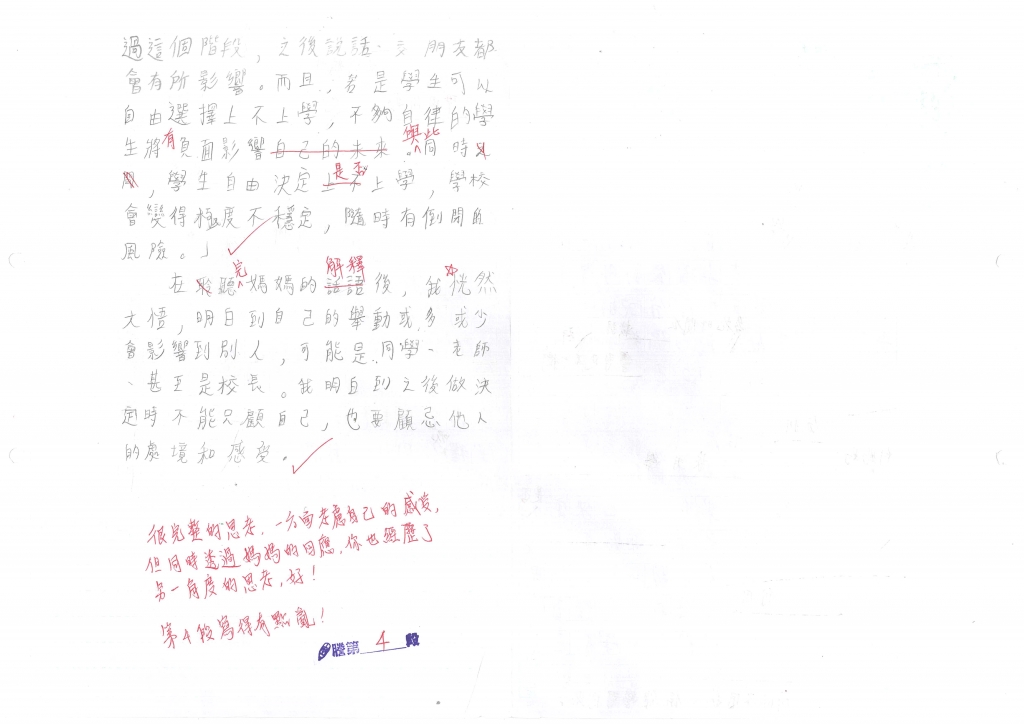 過這個階段，之後說話、交朋友都
會有所影響。而且，若是學生可以
自由選擇上不上學，不夠自律的學
生將有負面影響自己的未來。與此同時
，學生自由決定是否上不上學，學校
會變得極度不穩定，隨時有倒閉的
風險。」
在聽完媽媽的話語解釋後，我恍然
大悟，明白到自己的舉動或多或少
會影響到別人，可能是同學、老師
、甚至是校長。我明白到之後做決
定時不能只顧自己，也要顧忌他人
的處境和感受。
很完整的思考，一方面考慮自己的感受，
但同時透過媽媽的回應，你也經歷了
另一角度的思考，好！
第4段寫得有點亂！
謄第 4 段